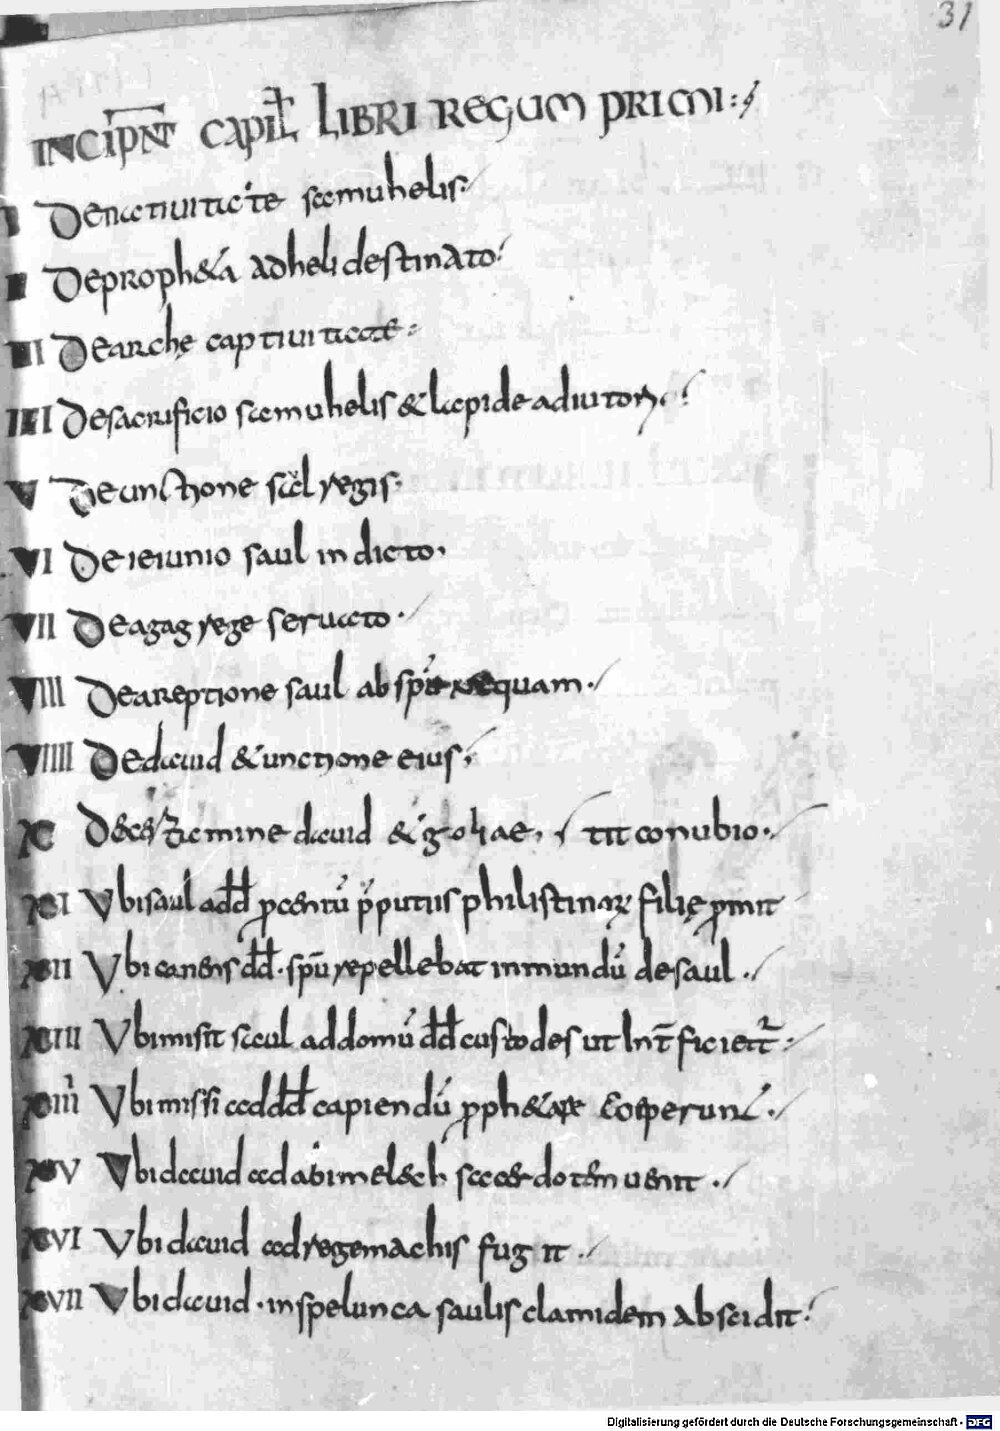 31
INCIPNT CAPITL LIBRI REGUM PRIMI
I De natiuitate samuhelis
II De propheta ad heli destinato
III De arche captiuitate
IIII De sacrificio samuhelis & lapide adiutorii
V De unctione saul regis
VI De ieiunio saul indicto
VII De agag rege seruato
VIII De areptione saul ab spu nequam
VIIII De dauid & unctione eius
X De certamine dauid & goliae tit conubio
XI Ubi saul add centū pputiis philistinorū filię pmit
XII Ubi canens dd spm repellebat inmundū de saul
XIII Ubi misit saul ad domū dd custodes ut int̄ficiet
XIIII Ubi missi ad dd capiendū pphetare coeperunt
XV Ubi dauid ad abimelech sacerdotem uenit
XVI Ubi dauid ad rege machis fugit
XVII Ubi dauid in spelunca saulis clamidem abscidit
Digitalisierung gefördert durch die Deutsche Forschungsgemeinschaft - DFG